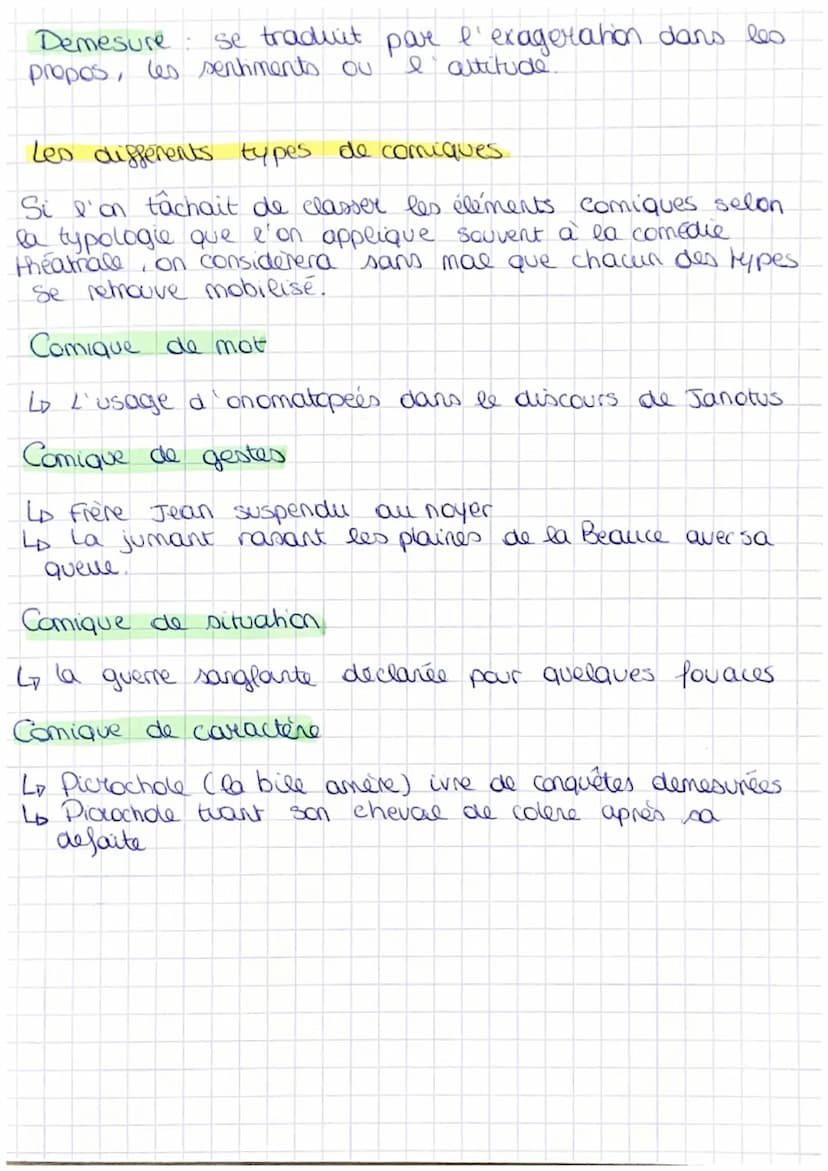 Demesure : se traduit par l'exageration dans les
propos, les sentiments ou l'attitude.
Les différents types de comiques
Si l'on tâchait de classer les éléments comiques selon
la typologie que l'on applique souvent à la comédie
théatrale, on considérera sans mal que chacun des types
se retrouve mobilisé.
Comique de mot
↳ L'usage d'onomatopées dans le discours de Janotus
Comique de gestes
↳ Frère Jean suspendu au noyer
↳ La jumant rasant les plaines de la Beauce avec sa
queue.
Comique de situation
↳ la guerre sanglante déclarée pour quelques fouaces
Comique de caractère
↳ Picrochole (la bile amère) ivre de conquêtes demesurées
↳ Picrochole tuant son cheval de colère après sa
defaite